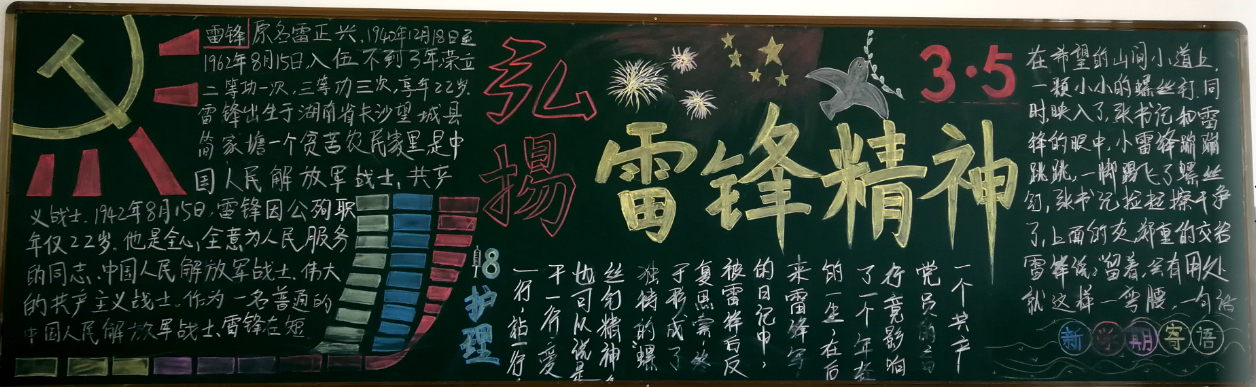 雷锋原名雷正兴，1940年12月18日至
1962年8月15日，入伍不到3年荣立
二等功一次，三等功三次，享年22岁.
雷锋出生于湖南省长沙望城县
简家塘一个贫苦农民家里是中
国人民解放军战士，共产
义战士，1942年8月15日，雷锋因公殉职
年仅22岁.他是全心全意为人民服务
的同志.中国人民解放军战士.伟大
的共产主义战士.作为一名普通的
中国人民解放军战士，雷锋在短
弘揚
雷锋精神
3·5
18护理
一个共产
党员的言
行竟影响
了一个年轻
的一生，在后
来雷锋写
的日记中，
被雷锋后反
复思索，终
于形成了
独特的螺
丝钉精神，
也可以说是
干一行，爱
一行，钻一行，
在希望的山间小道上，
一颗小小的螺丝钉，同
时映入了张书记和雷
锋的眼中，小雷锋蹦蹦
跳跳，一脚踢飞了螺丝
钉，张书记捡起擦干净
了上面的灰，郑重的交给
雷锋说：留着，会有用处
就这样一弯腰，一句话
新学期寄语